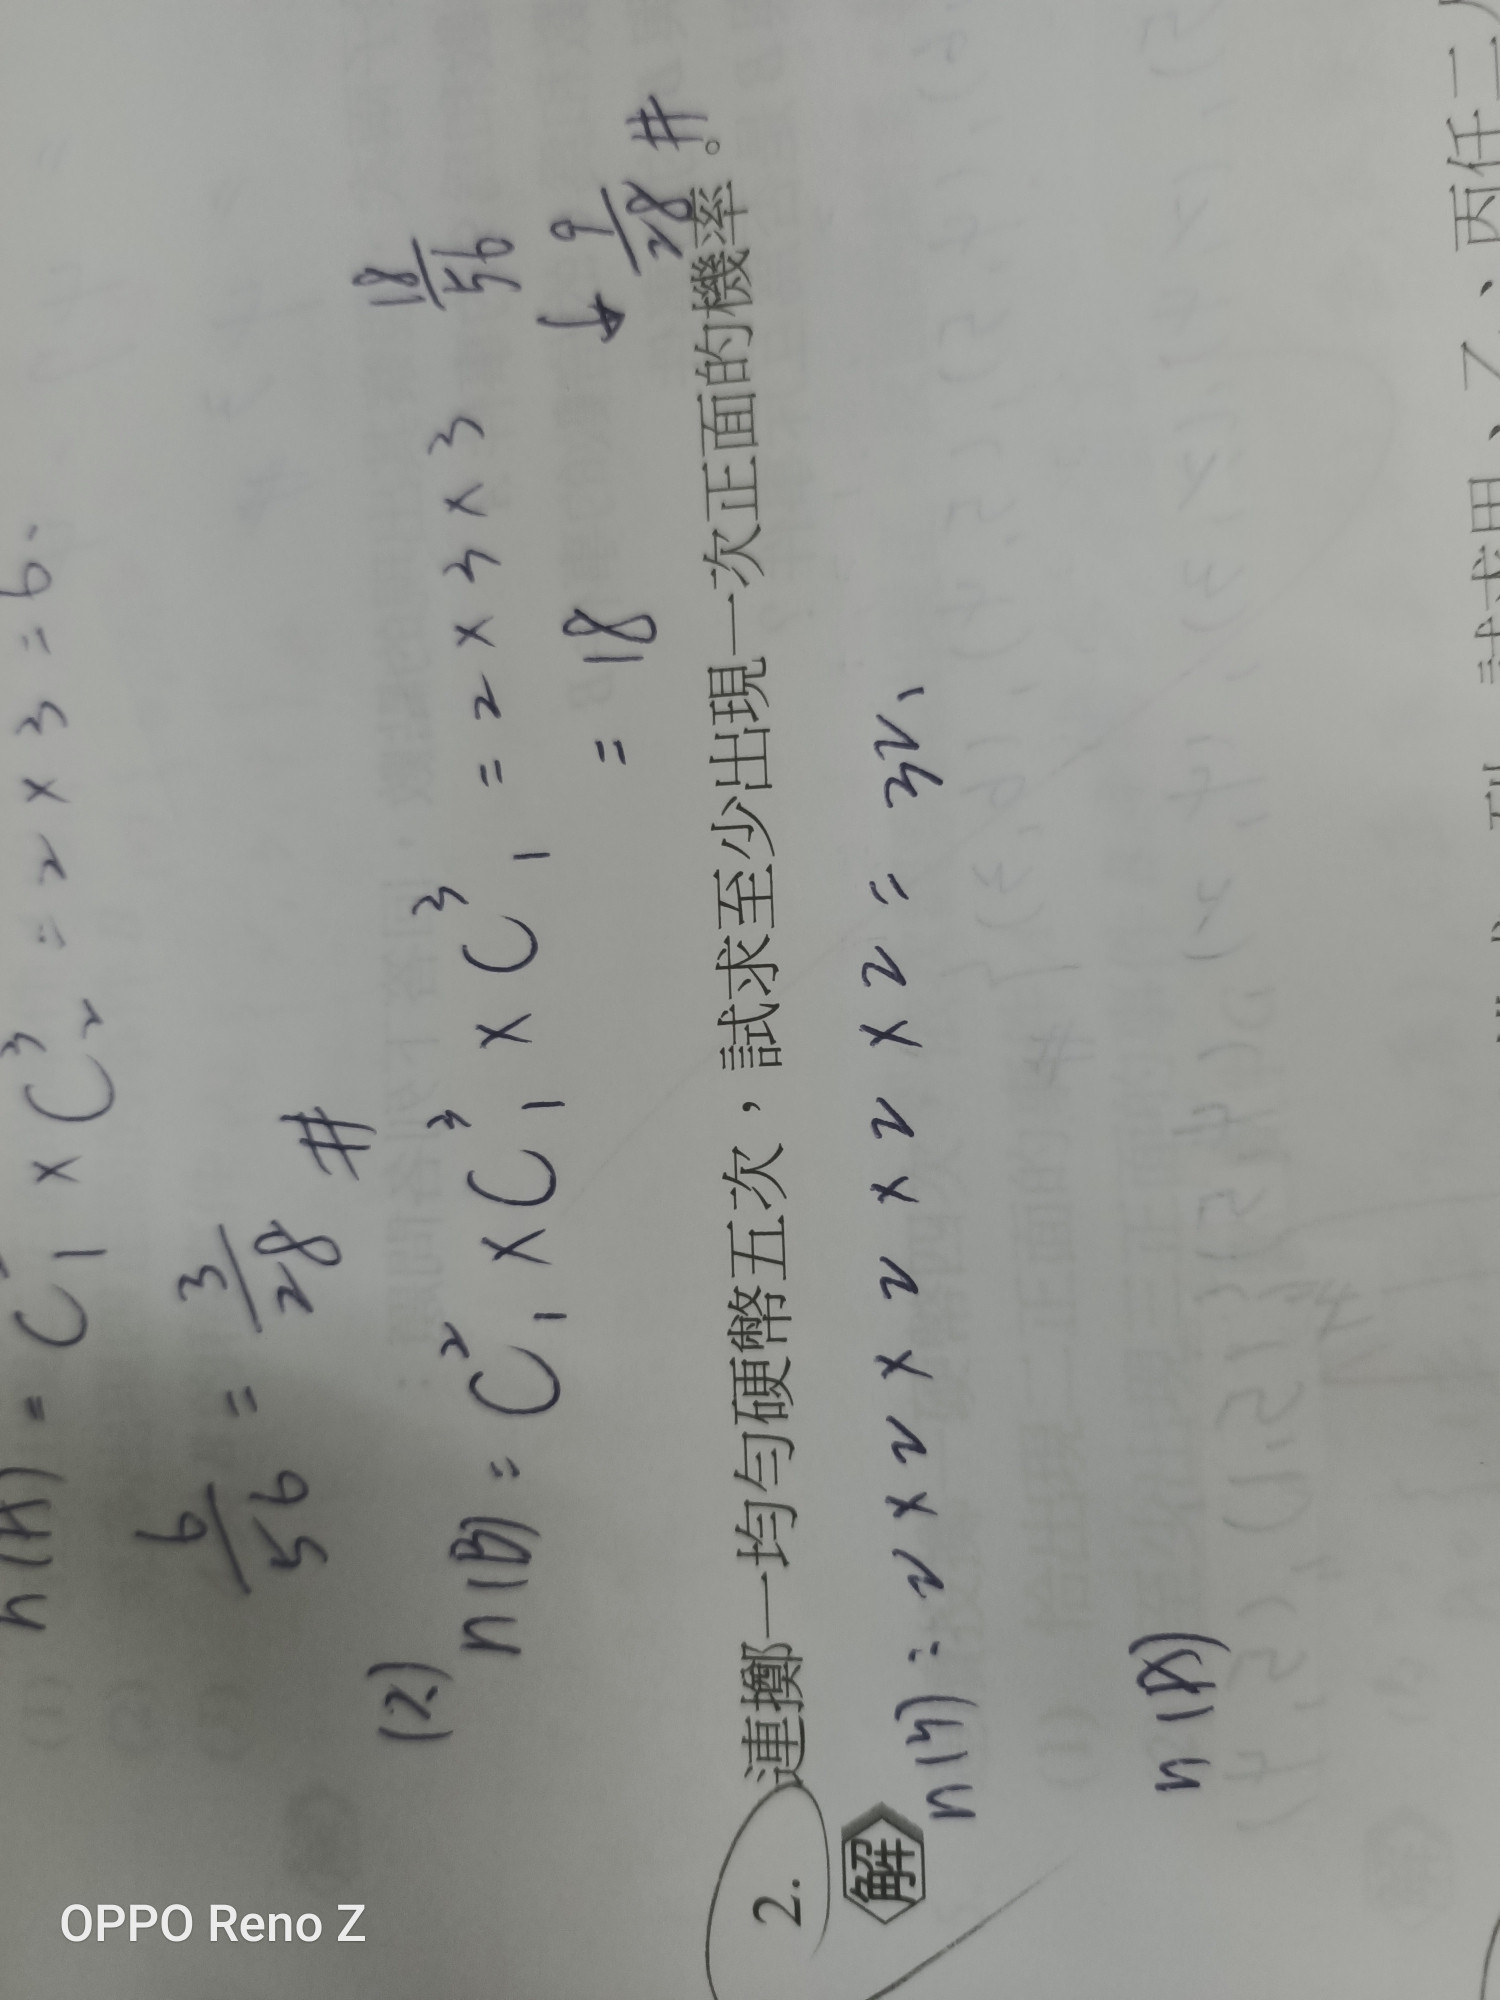 n(A) = C²₁ × C³₂ = 2 × 3 = 6.
6/56 = 3/28 #
(2)
n(B) = C²₁ × C³₁ × C³₁ = 2 × 3 × 3 18/56
= 18 ↳ 9/28 #
2. 連擲一均勻硬幣五次，試求至少出現一次正面的機率。
解
n(S) = 2 × 2 × 2 × 2 × 2 = 32.
n(B)
、丙任二
OPPO Reno Z